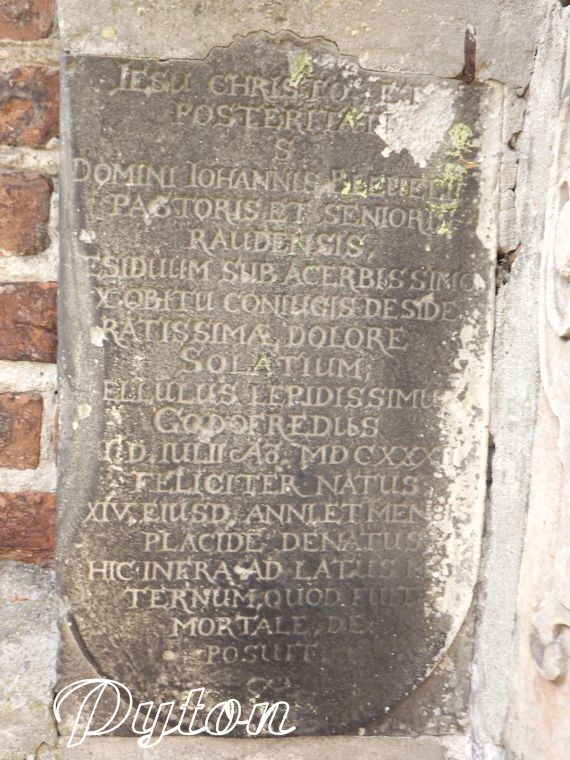 IESU CHRISTO ET
POSTERITATI
S
DOMINI IOHANNIS
PASTORIS ET SENIORIS
RAUDENSIS,
ESIDUUM SUB ACERBISSIMO
X OBITU CONIUGIS DESIDE
RATISSIMÆ, DOLORE
SOLATIUM;
ELLULUS LEPIDISSIMUS
GODOFREDUS
D. IULII Aō. MDCXXXII
FELICITER NATUS
XIV, EIUSD, ANNI, ET MEN
PLACIDE DENATUS
HIC INFRA AD LATUS M
TERNUM, QUOD FUIT
MORTALE, DE
POSUIT
Pyton